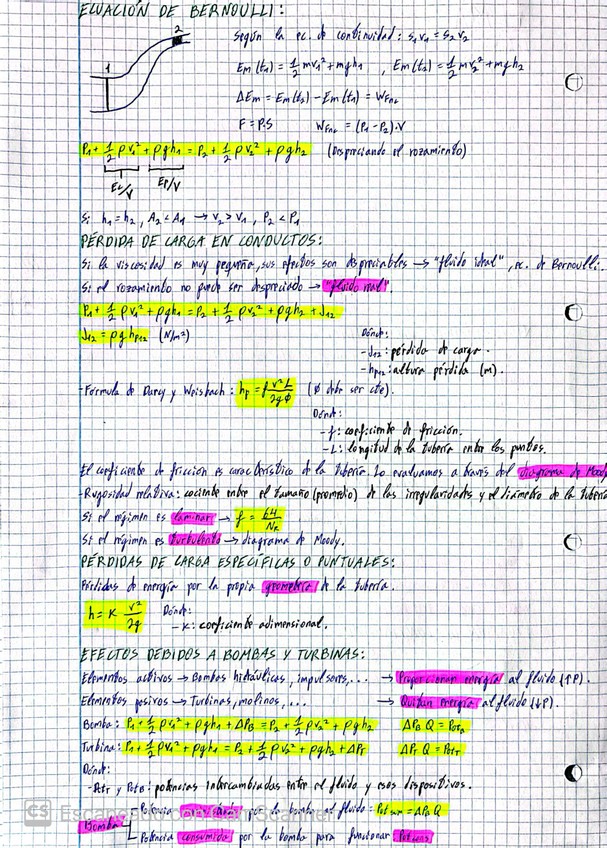 ECUACIÓN DE BERNOULLI:
1 2
Según la ec. de continuidad: S₁V₁ = S₂V₂
Em(t₁) = 1/2 mv₁² + mgh₁ , Em(t₂) = 1/2 mv₂² + mgh₂
ΔEm = Em(t₂) - Em(t₁) = W_Fnc
F = P·S W_Fnc = (P₁ - P₂)·V
P₁ + 1/2 ρv₁² + ρgh₁ = P₂ + 1/2 ρv₂² + ρgh₂ (Despreciando el rozamiento)
Ec/V Ep/V
Si h₁ = h₂, A₂ < A₁ → v₂ > v₁, P₂ < P₁
PÉRDIDA DE CARGA EN CONDUCTOS:
Si la viscosidad es muy pequeña, sus efectos son despreciables → "fluido ideal", ec. de Bernoulli.
Si el rozamiento no puede ser despreciado → "fluido real"
P₁ + 1/2 ρv₁² + ρgh₁ = P₂ + 1/2 ρv₂² + ρgh₂ + J₁₂
J₁₂ = ρg hp₁₂ (N/m²)
Dónde:
- J₁₂: pérdida de carga.
- hp₁₂: altura pérdida (m).
- Fórmula de Darcy y Weisbach: hp = f v²L/2gφ (φ debe ser cte).
Dónde:
- f: coeficiente de fricción.
- L: longitud de la tubería entre los puntos.
El coeficiente de fricción es característico de la tubería. Lo evaluamos a través del diagrama de Moody
- Rugosidad relativa: cociente entre el tamaño (promedio) de las irregularidades y el diámetro de la tubería
Si el régimen es laminar → f = 64/N_R
Si el régimen es turbulento → diagrama de Moody.
PÉRDIDAS DE CARGA ESPECÍFICAS O PUNTUALES:
Pérdidas de energía por la propia geometría de la tubería.
h = K v²/2g Dónde:
- K: coeficiente adimensional.
EFECTOS DEBIDOS A BOMBAS Y TURBINAS:
Elementos activos → Bombas hidráulicas, impulsores,... → Proporcionan energía al fluido (↑P).
Elementos pasivos → Turbinas, molinos, ... → Quitan energía al fluido (↓P).
Bomba: P₁ + 1/2 ρv₁² + ρgh₁ + ΔP_B = P₂ + 1/2 ρv₂² + ρgh₂ ΔP_B Q = Pot_B
Turbina: P₁ + 1/2 ρv₁² + ρgh₁ = P₂ + 1/2 ρv₂² + ρgh₂ + ΔP_T ΔP_T Q = Pot_T
Dónde:
- Pot_T y Pot_B: potencias intercambiadas entre el fluido y esos dispositivos.
Bomba
- Potencia por la bomba al fluido: = ΔP_B Q
- Potencia consumida por la bomba para funcionar Pot cons
CS Escaneado con CamScanner